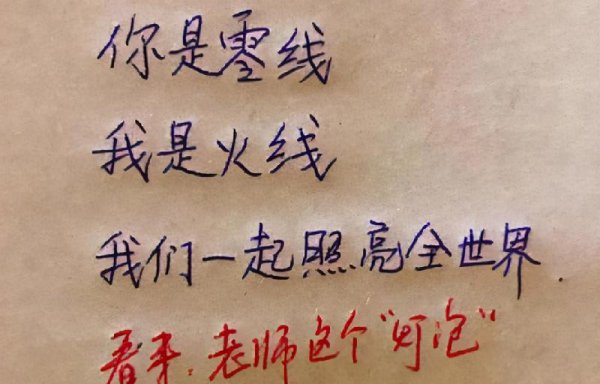 你是零线
我是火线
我们一起照亮全世界.
看来,老师这个"灯泡"